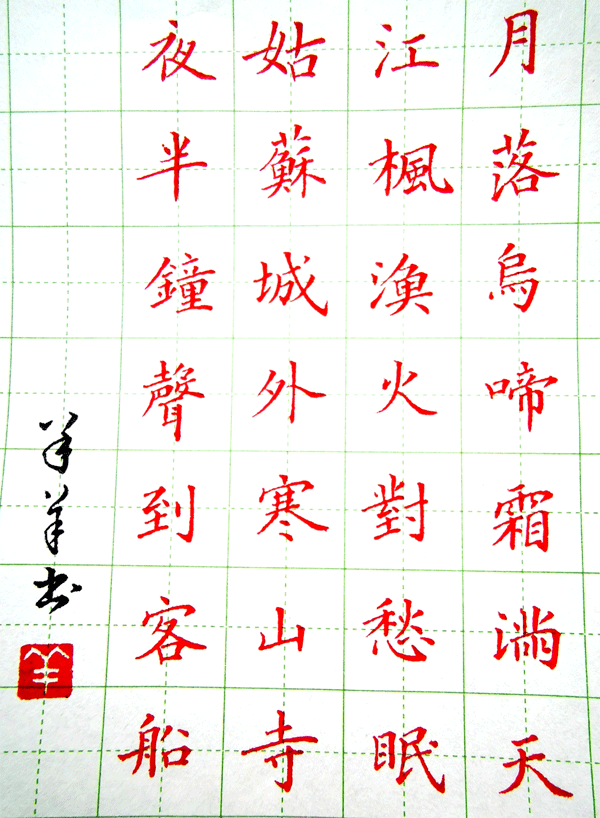 月落烏啼霜滿天
江楓漁火對愁眠
姑蘇城外寒山寺
夜半鐘聲到客船
羊羊书
羊